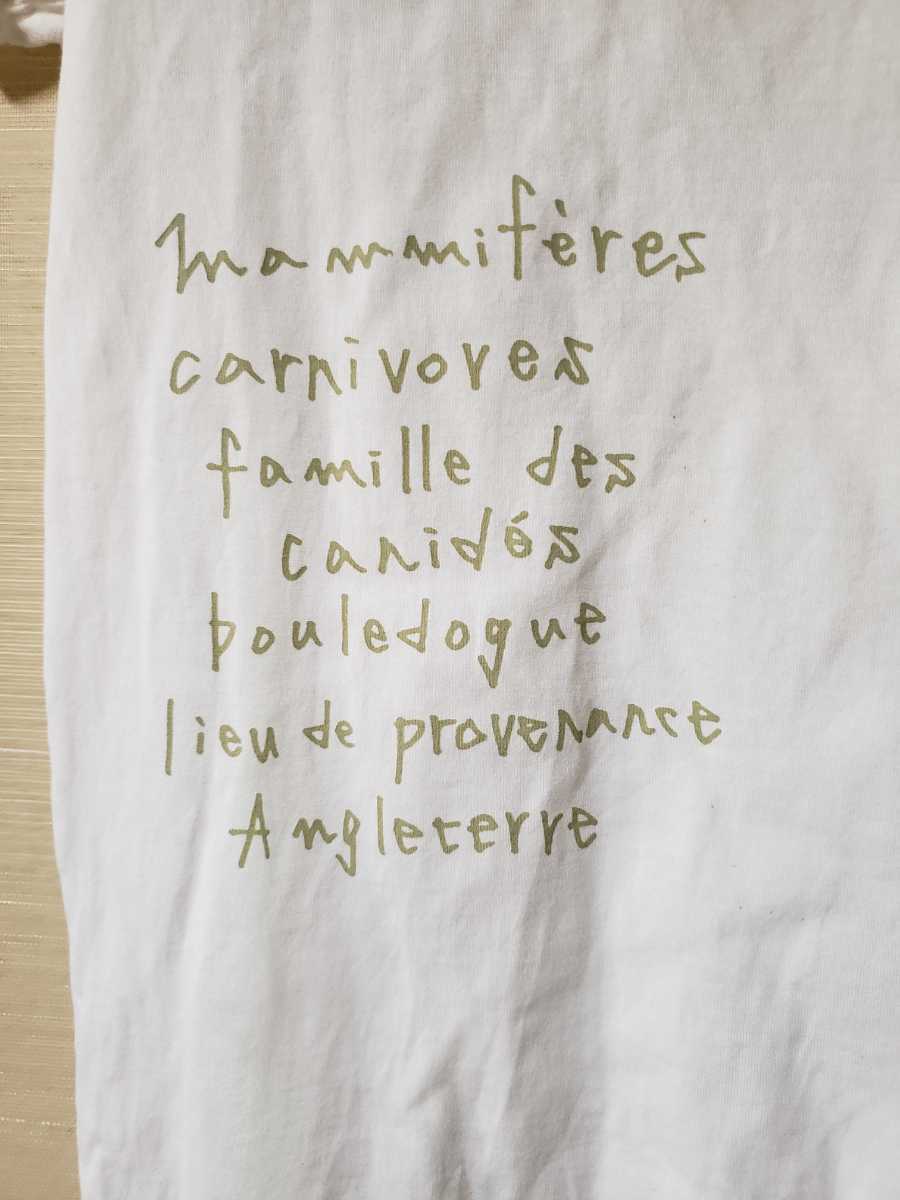 mammifères
carnivores
famille des
canidés
bouledogue
lieu de provenance
Angleterre